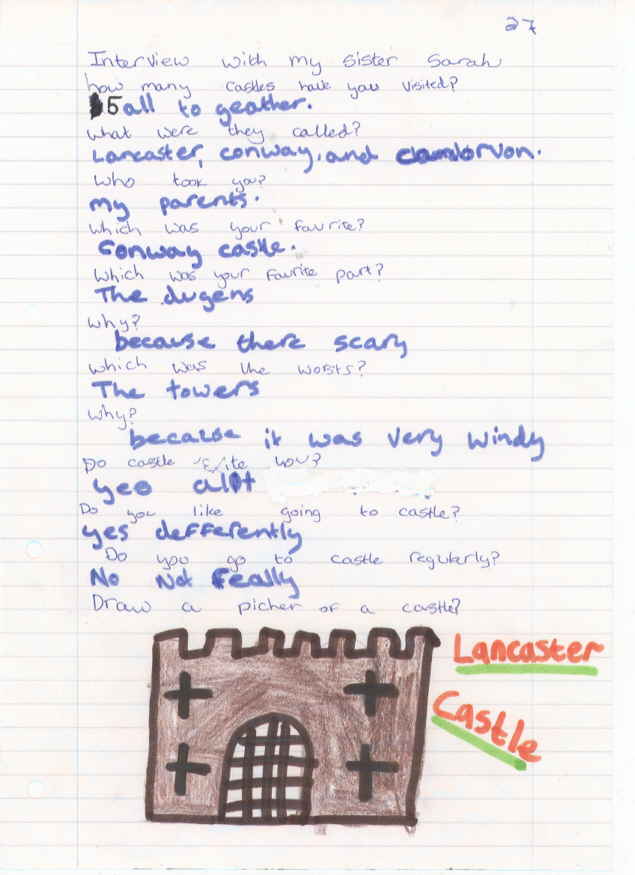 27
Interview with my sister Sarah
how many castles have you visited?
5 all to geather.
what were they called?
Lancaster, conway, and
Who took you?
my parents.
which was your favrite?
Conway castle.
Which was your favrite part?
The dugens
why?
because there scary
which was the worsts?
The towers
why?
because it was very windy
Do castle you?
yes alot
Do you like going to castle?
yes defferently
Do you go to castle regurly?
No Not really
Draw a picher of a castle?
Lancaster
Castle